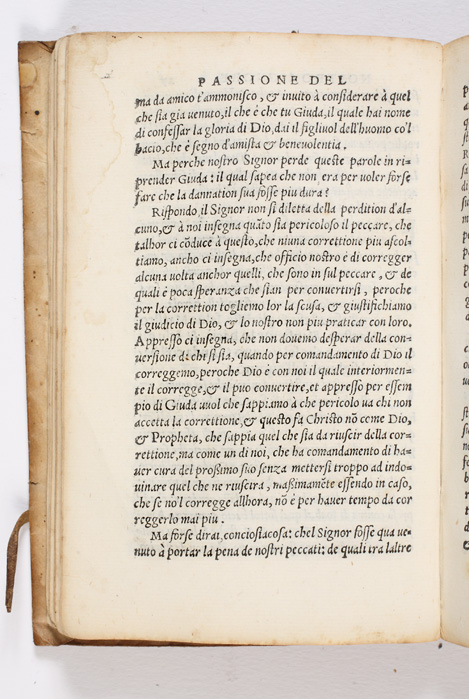 PASSIONE DEL
ma da amico t'ammonisco, & inuito à considerare à quel
che sia gia uenuto, il che è che tu Giuda, il quale hai nome
di confessar la gloria di Dio, dai il figliuol dell'huomo co'l
bacio, che è segno d'amista & beneuolentia.
Ma perche nostro Signor perde queste parole in ri-
prender Giuda: il qual sapea che non era per uoler forse
fare che la dannation sua fosse piu dura?
Rispondo, il Signor non si diletta della perdition d'al-
cuno, & à noi insegna quãto sia pericoloso il peccare, che
talhor ci cõduce à questo, che niuna correttione piu ascol-
tiamo, ancho ci insegna, che officio nostro è di corregger
alcuna uolta anchor quelli, che sono in sul peccare, & de
quali è poca speranza che sian per conuertirsi, peroche
per la correttion togliemo lor la scusa, & giustifichiamo
il giudicio di Dio, & lo nostro non piu praticar con loro.
Appresso ci insegna, che non douemo desperar della con-
uersione di chi si sia, quando per comandamento di Dio il
correggemo, peroche Dio è con noi il quale interiormen-
te il corregge, & il puo conuertire, et appresso per essem
pio di Giuda uuol che sappiamo à che pericolo ua chi non
accetta la correttione, & questo fa Christo nõ come Dio,
& Propheta, che sappia quel che sia da riuscir della cor-
rettione, ma come un di noi, che ha comandamento di ha-
uer cura del prossimo suo senza mettersi troppo ad indo-
uinare quel che ne riuscira, massimamẽte essendo in caso,
che se no'l corregge allhora, nõ è per hauer tempo da cor
reggerlo mai piu.
Ma forse dirai, conciosiacosa: chel Signor fosse qua ue-
nuto à portar la pena de nostri peccati: de quali ira laltre